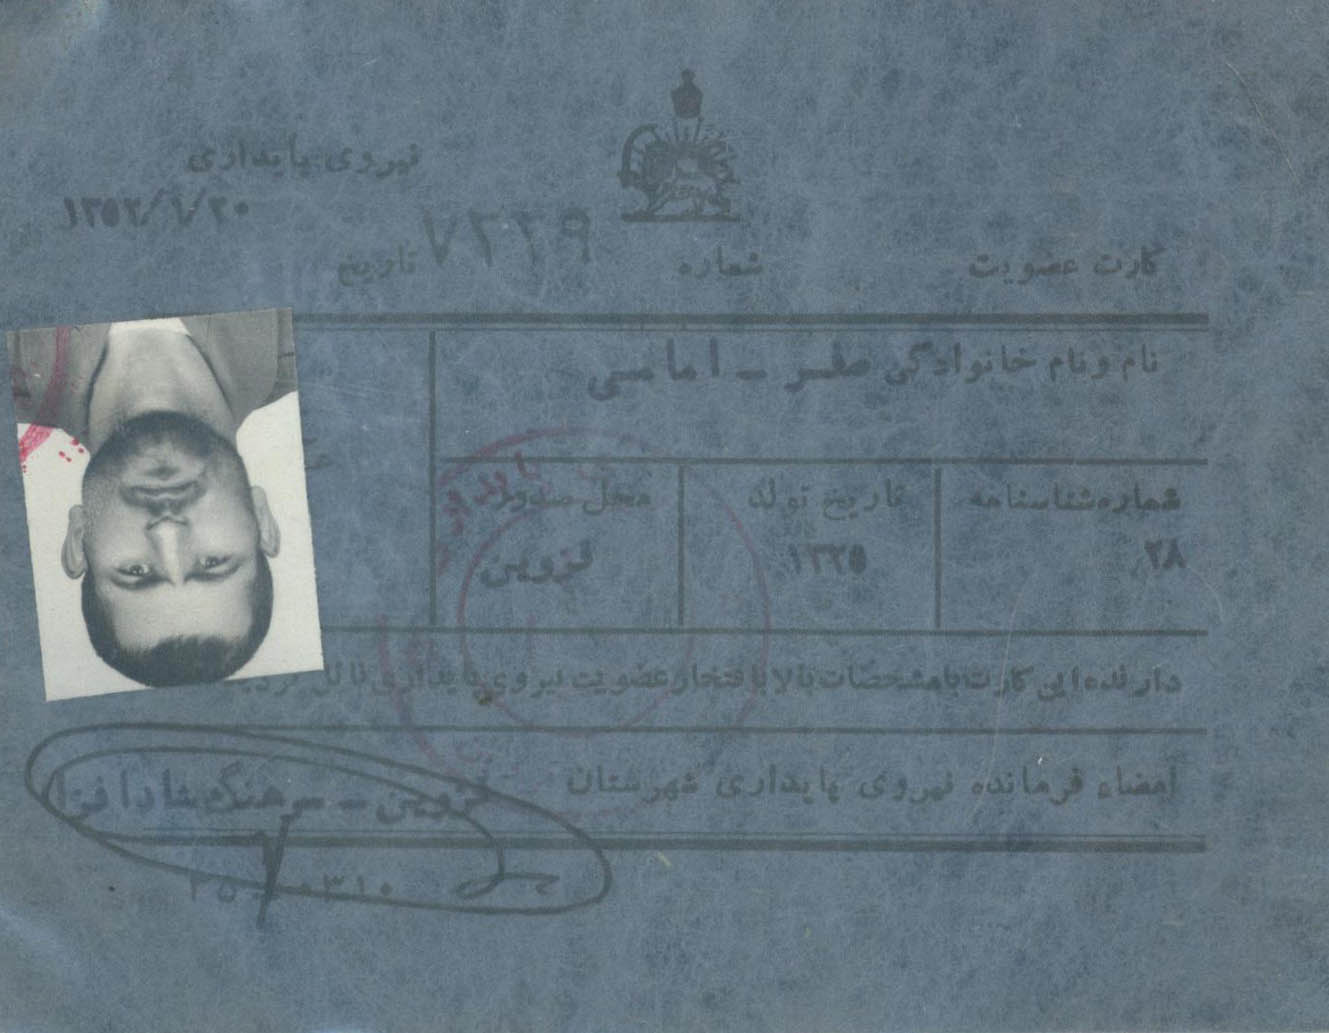 نیروی پایداری
۱۳۵۲/۱/۲۰
کارت عضویت شماره ۷۲۲۹ تاریخ
نام و نام خانوادگی صفر - امامی
شماره شناسنامه تاریخ تولد محل صدور
۲۸ ۱۳۲۵ قزوین
دارنده این کارت بامشخصات بالا با افتخار عضویت نیروی پایداری نائل گردید
امضاء فرمانده نیروی پایداری شهرستان قزوین - سرهنگ